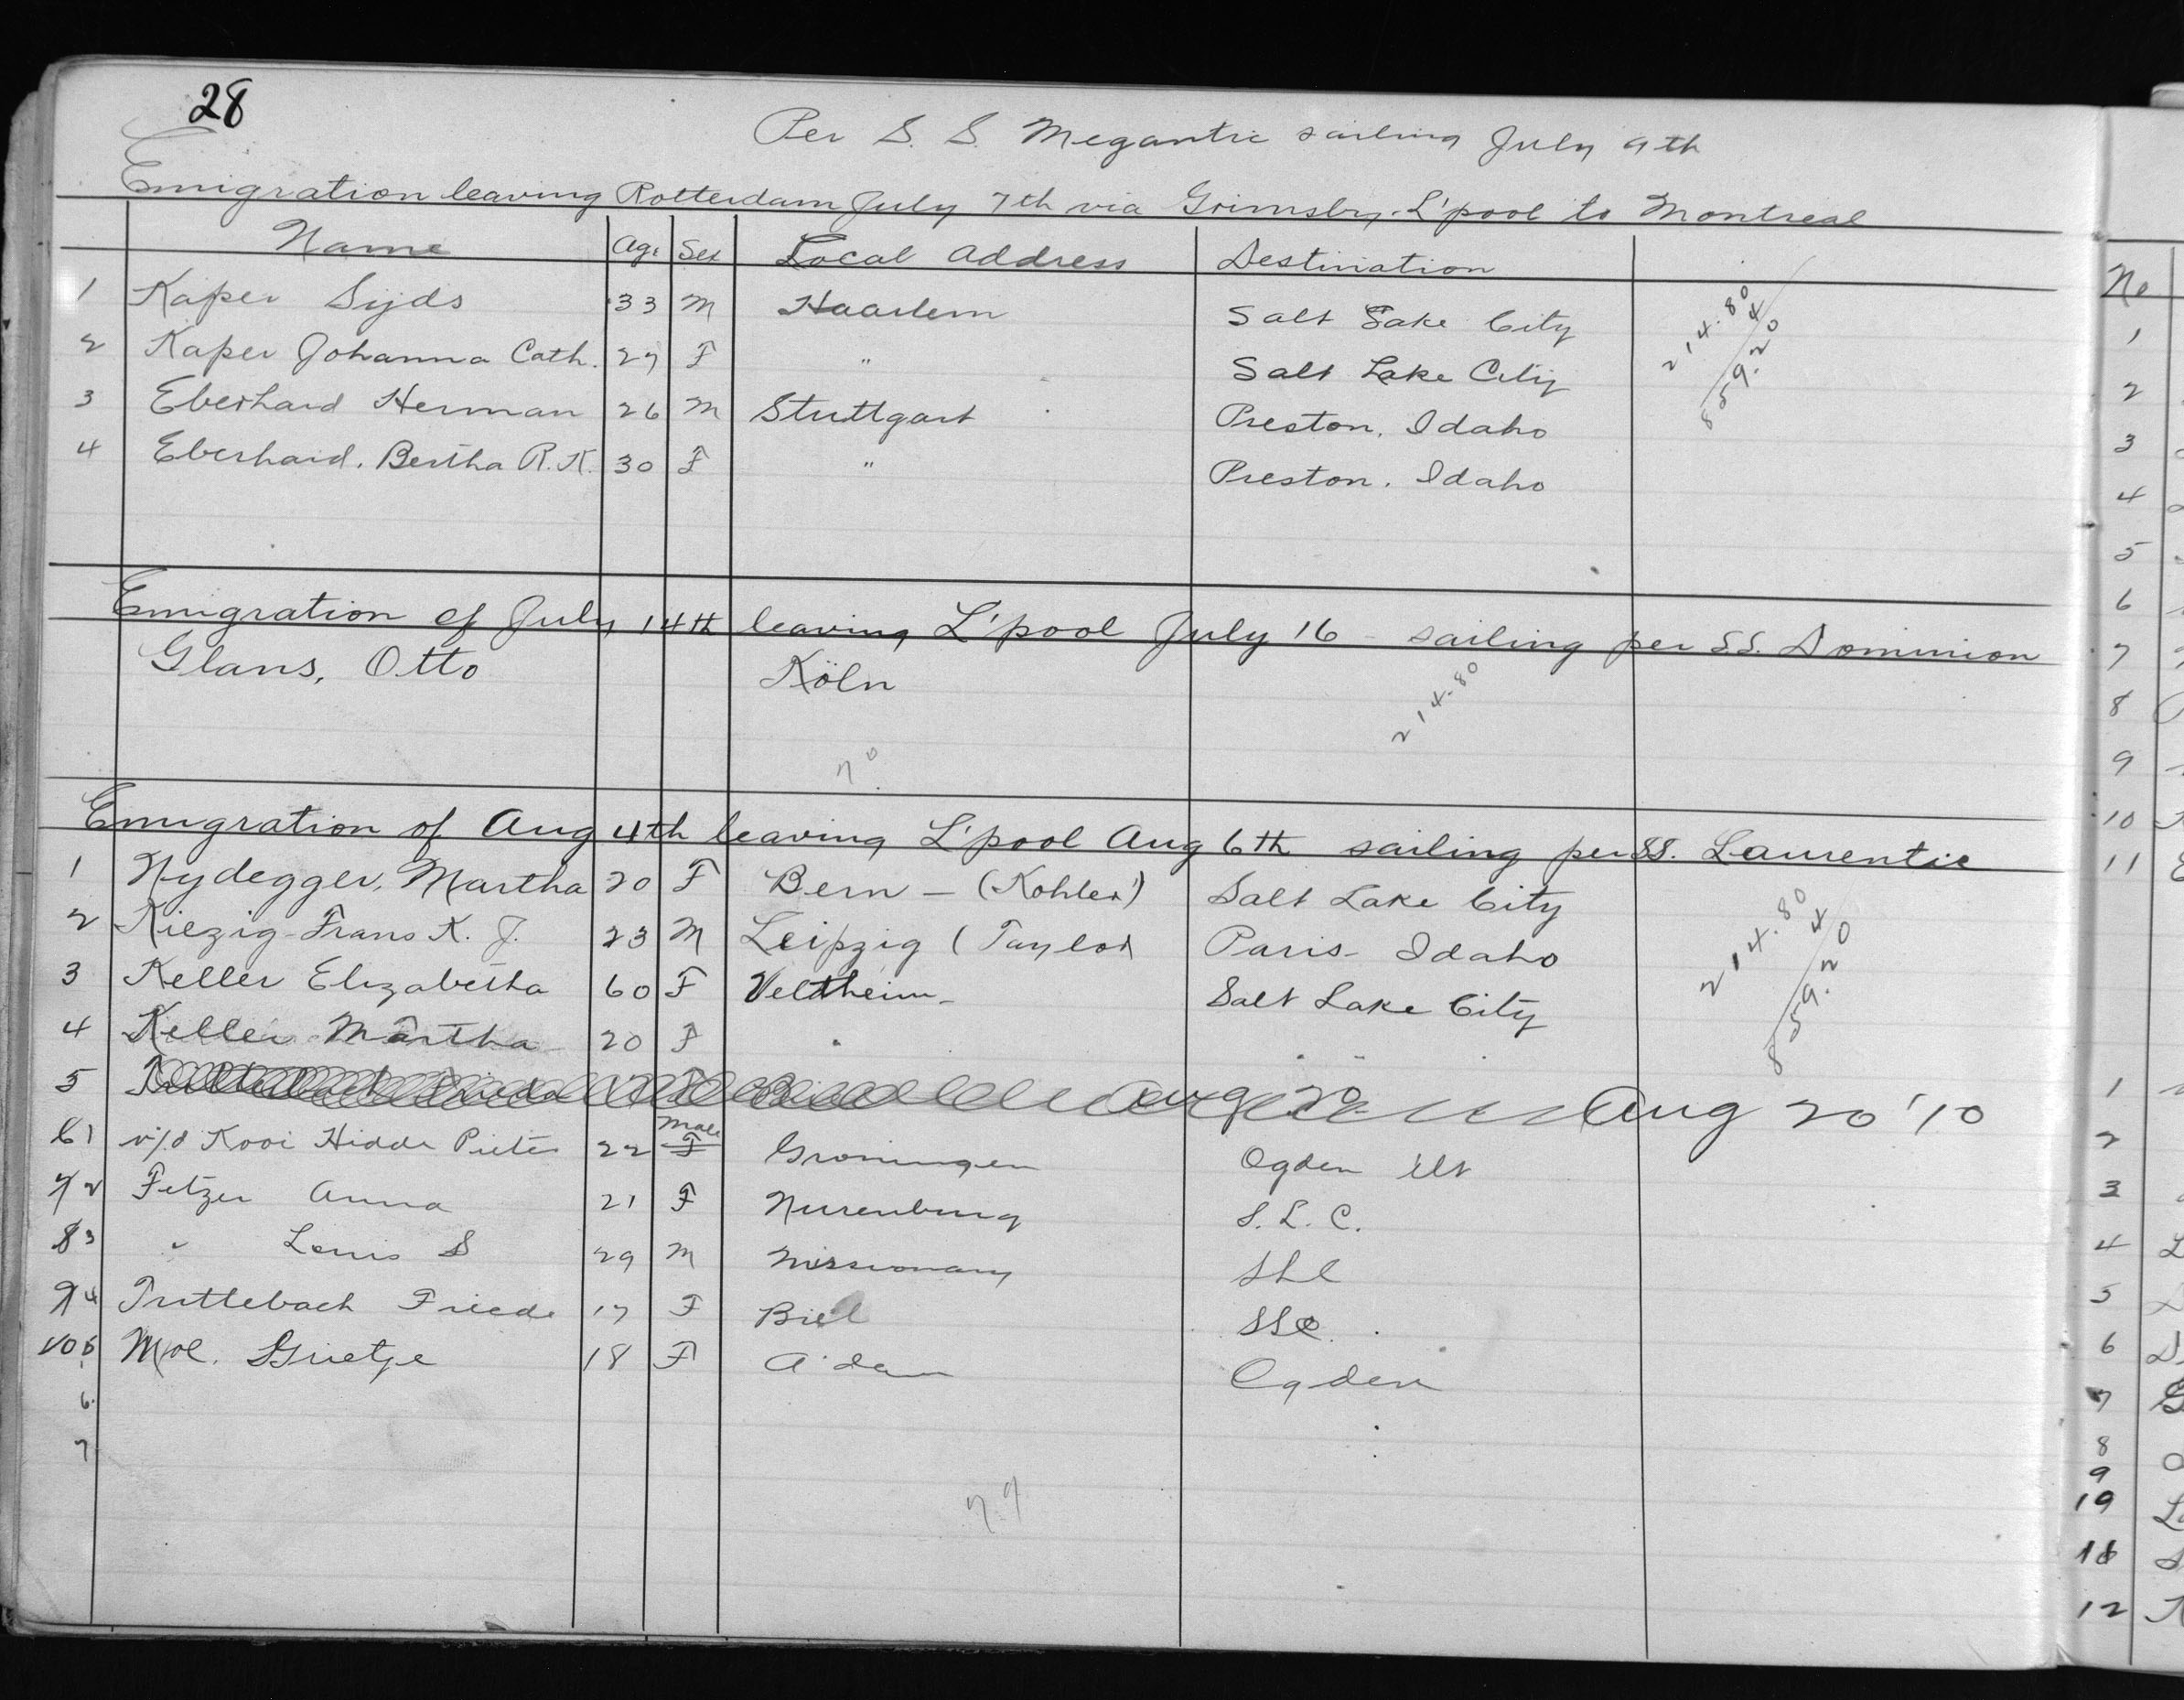 28
Per S. S. Megantic sailing July 9th
Emigration leaving Rotterdam July 7th via Grimsby-L'pool to Montreal
Name Age Sex Local Address Destination
1 Kaper Sijds 33 M Haarlem Salt Lake City 214.80
2 Kaper Johanna Cath. 27 F " Salt Lake City 4
3 Eberhard Herman 26 M Stuttgart Preston, Idaho 859.20
4 Eberhard, Bertha R. K. 30 F " Preston, Idaho
Emigration of July 14th leaving L'pool July 16 - sailing per S.S. Dominion
Glans, Otto Köln 214.80
70
Emigration of Aug 4th leaving L'pool Aug 6th sailing per SS. Laurentic
1 Nydegger, Martha 20 F Bern - (Kohler) Salt Lake City 214.80
2 Kiezig Frans K. J. 23 M Leipzig (Taylor Paris - Idaho 4
3 Keller Elizabetha 60 F Veltheim - Salt Lake City 859.20
4 Keller Martha 20 F " " "
5 Aug 20 Aug 20 '10
6 1 v/d Kooi Hidde Pieter 22 Male F Groningen Ogden Ut
7 2 Fetzer Anna 21 F Nurenburg S. L. C.
8 3 " Louis S 29 M Missionary SLC
9 4 Truttlebach Frieda 17 F Biel SLC.
10 5 Mol. Grietje 18 F A'dam Ogden
6
7
79
No
1
2
3
4
5
6
7
8
9
10
11
1
2
3
4
5
6
7
8
9
10
18
12